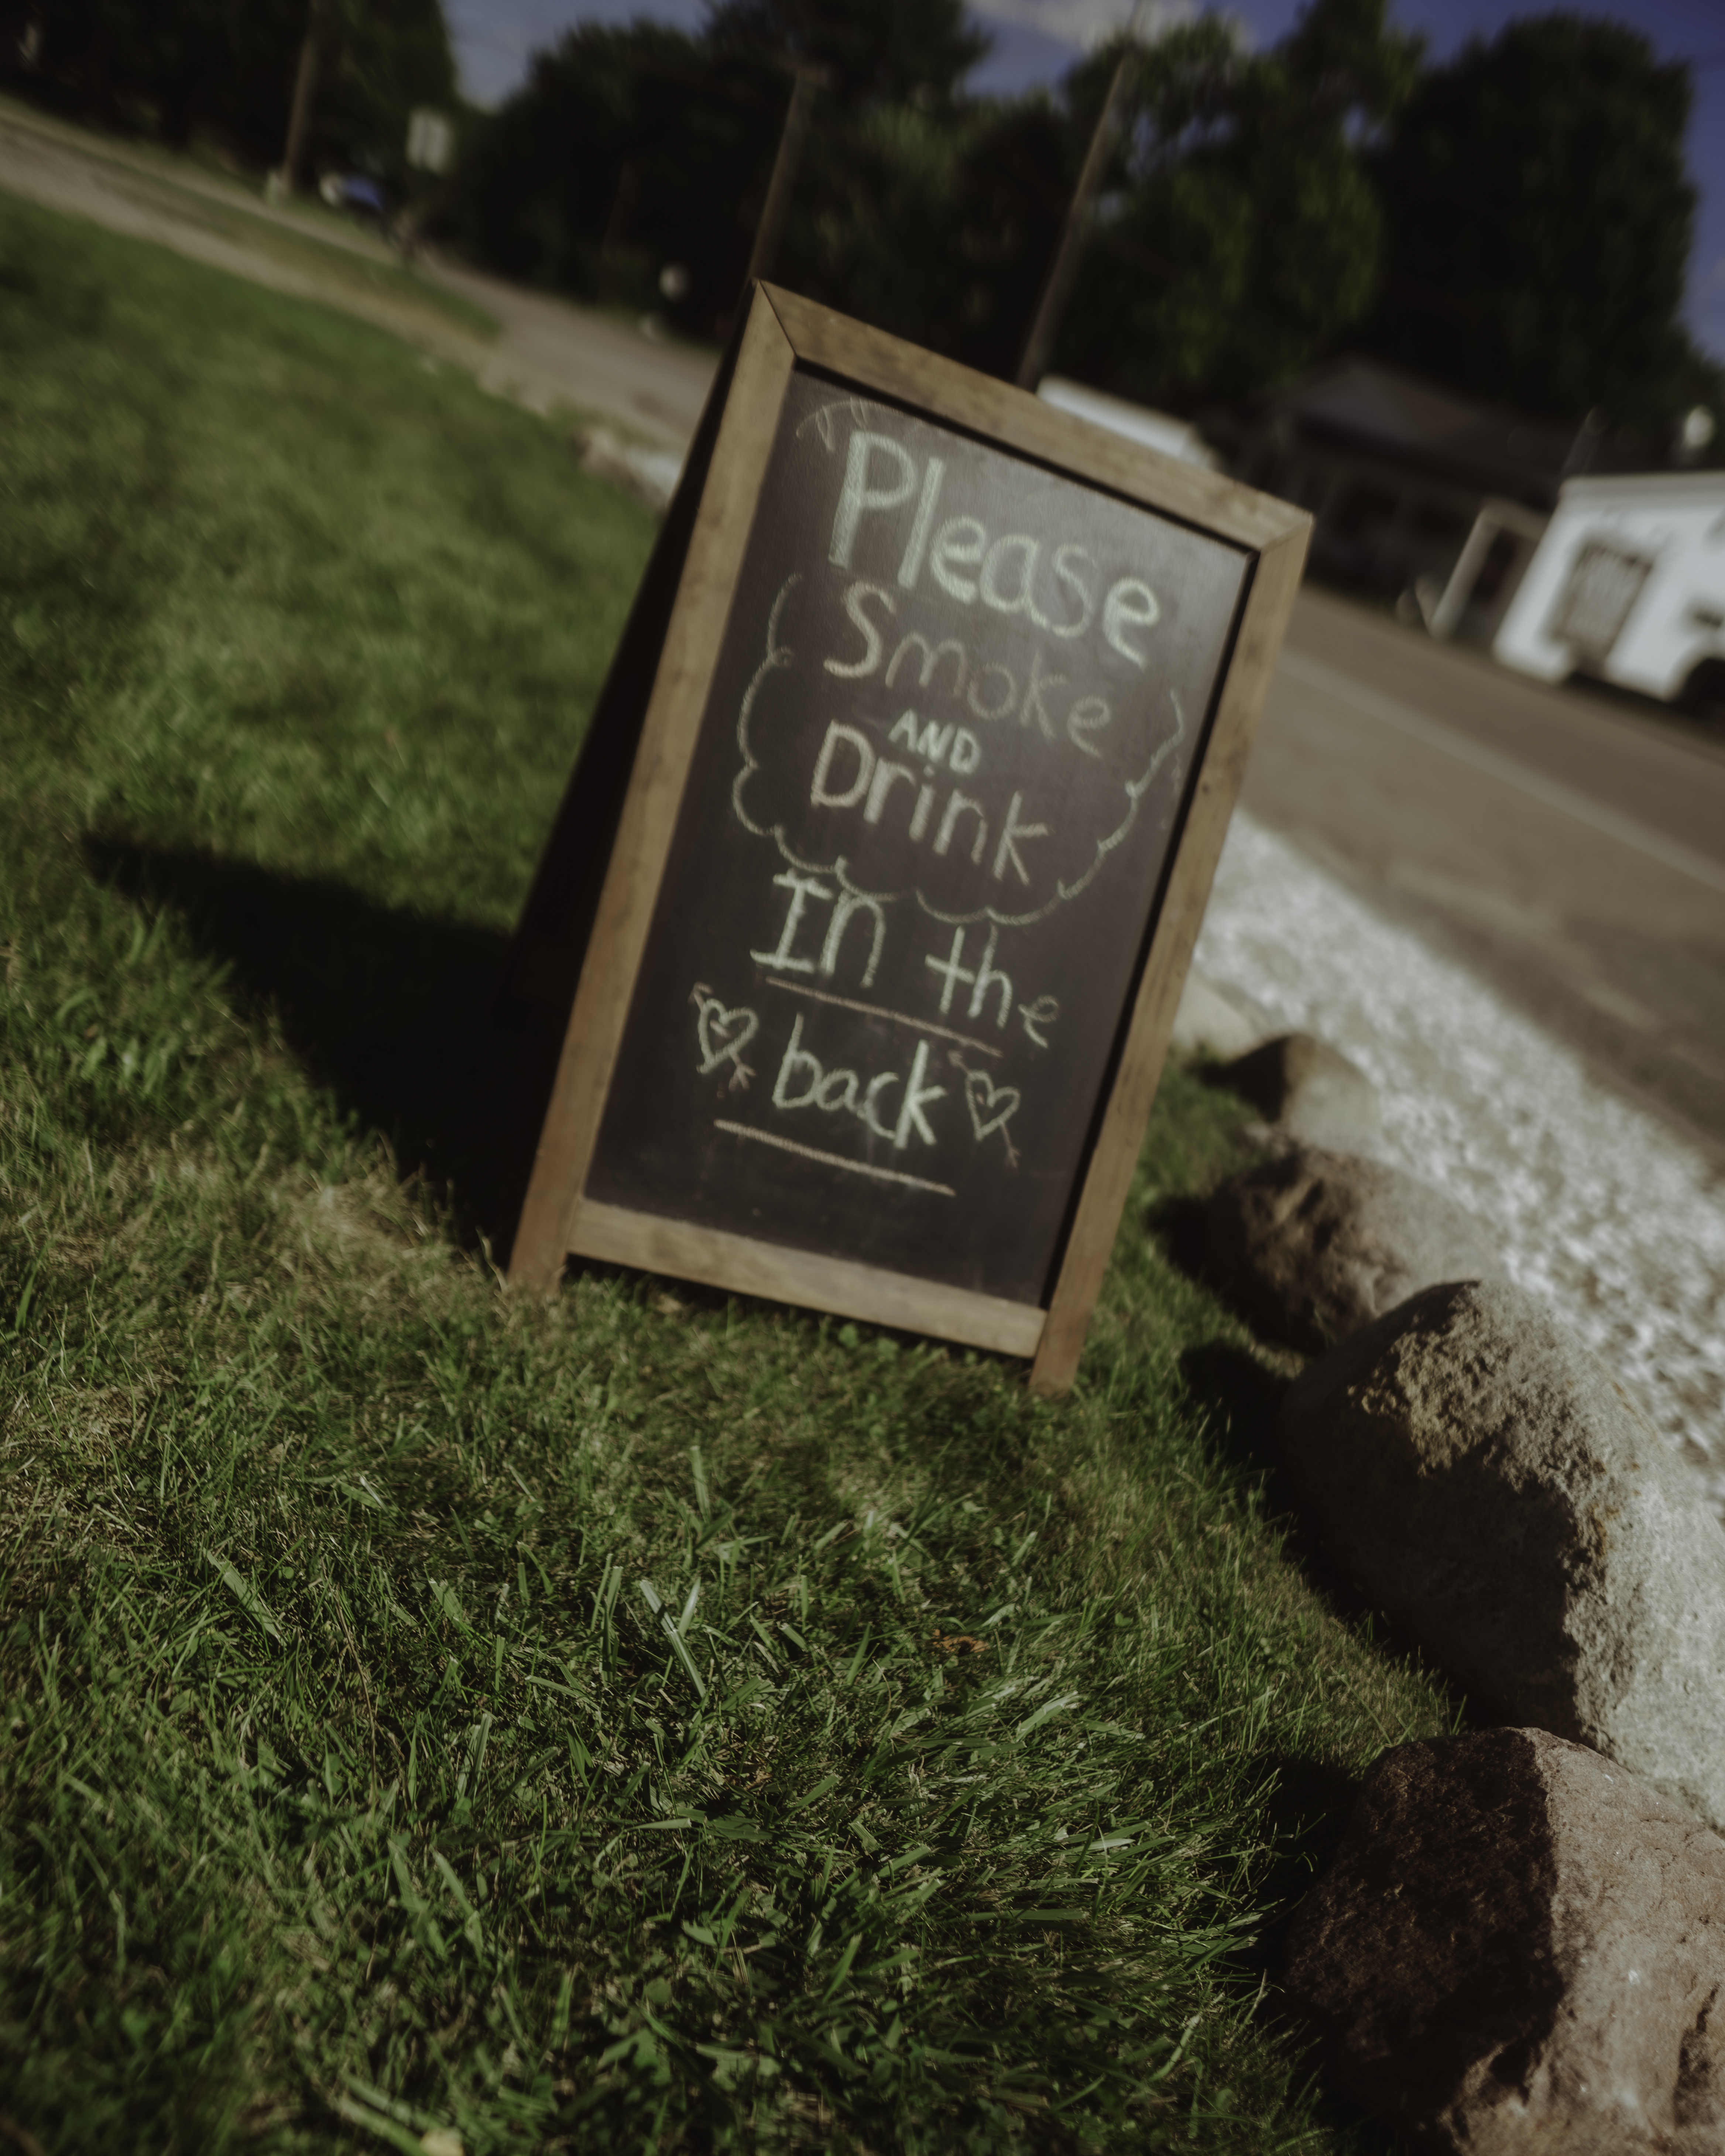 Please
Smoke
AND
Drink
In the
back